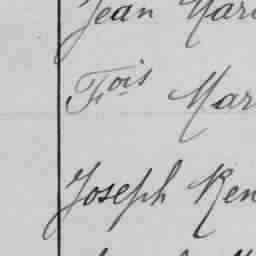 Jean Mari
Fois Mar
Joseph Ren